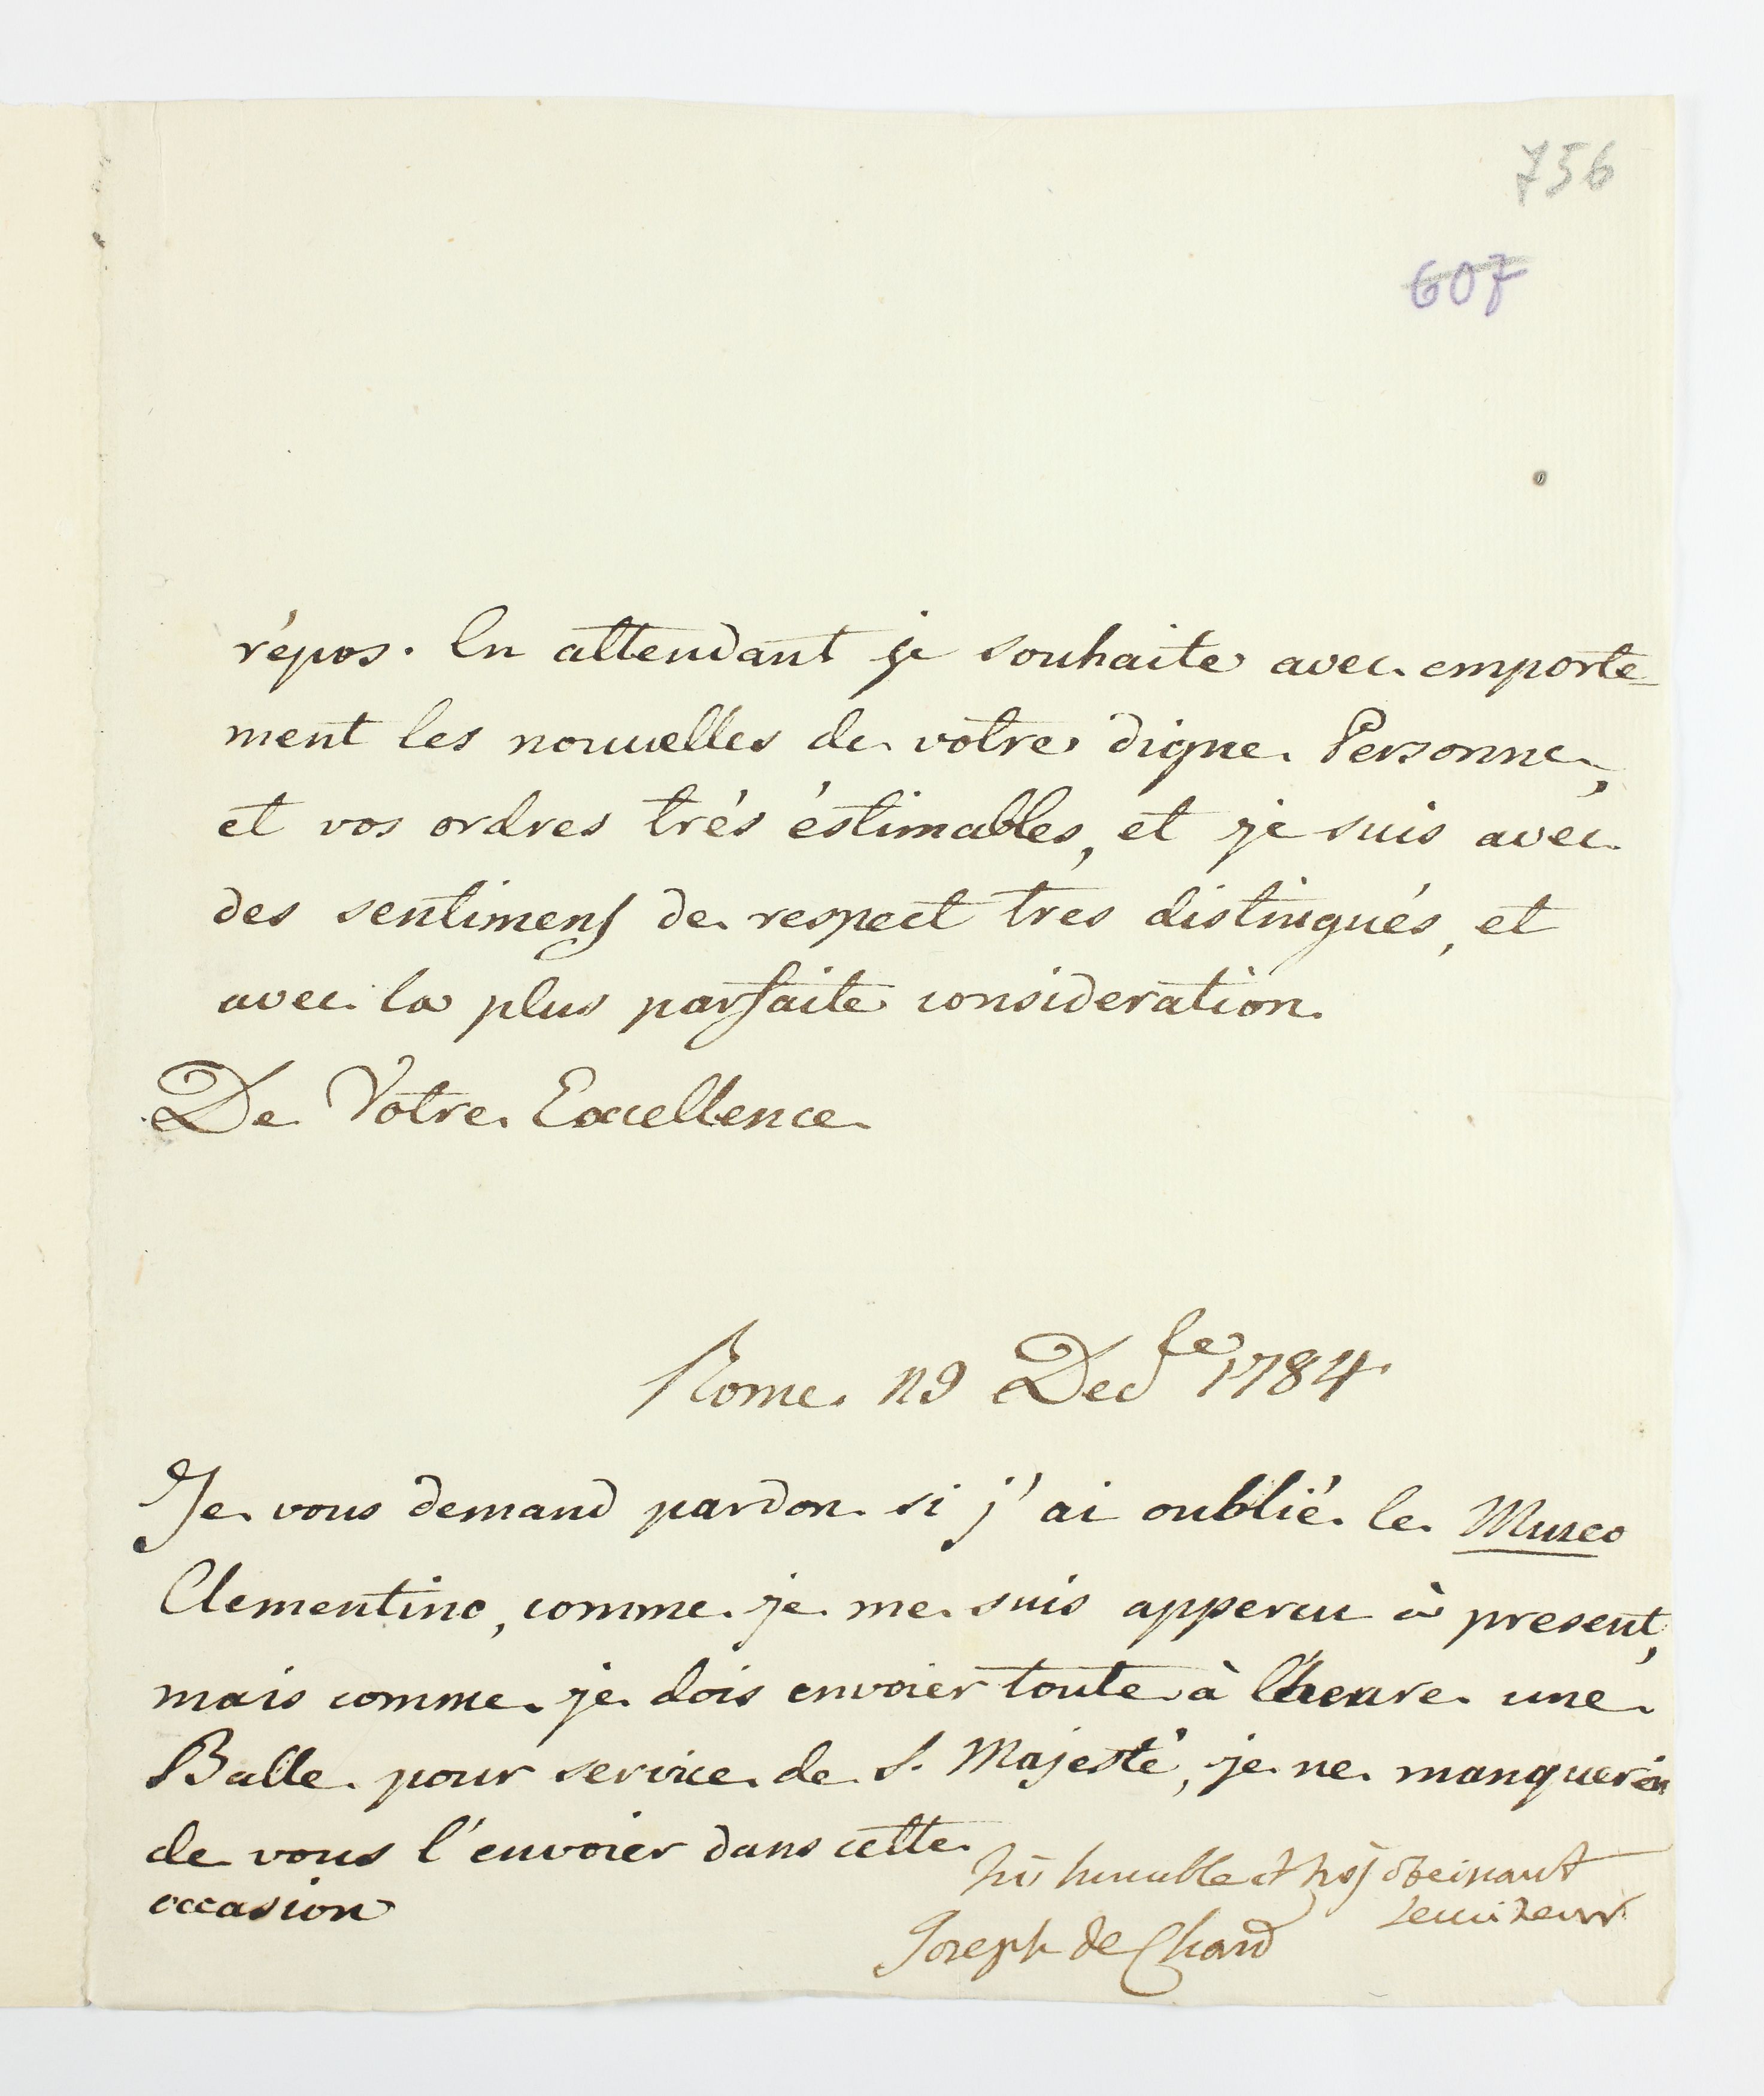 756
607
répos. En attendant je souhaite avec emporte-
ment les nouvelles de votre digne Personne,
et vos ordres trés éstimables, et je suis avec
des sentimens de respect trés distingués, et
avec la plus parfaite consideration.
De Votre Excellence
Rome 29 Dec.bre 1784
Je vous demand pardon si j'ai oublié le Museo
Clementino, comme je me suis appercu à present,
mais comme je dois envoier toute à l'heure une
Balle pour service de S. Majesté, je ne manquerai
de vous l'envoier dans cette
occasion
trés humble et trés obeissant
Serviteur
Joseph de